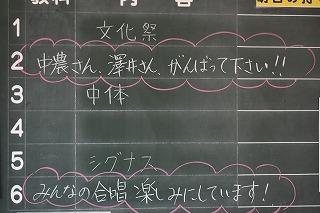 教科 内容
1 文化祭
2 中農さん、澤井さん、がんばって下さい!!
3 中体
4
5 シグナス
6 みんなの合唱楽しみにしています!